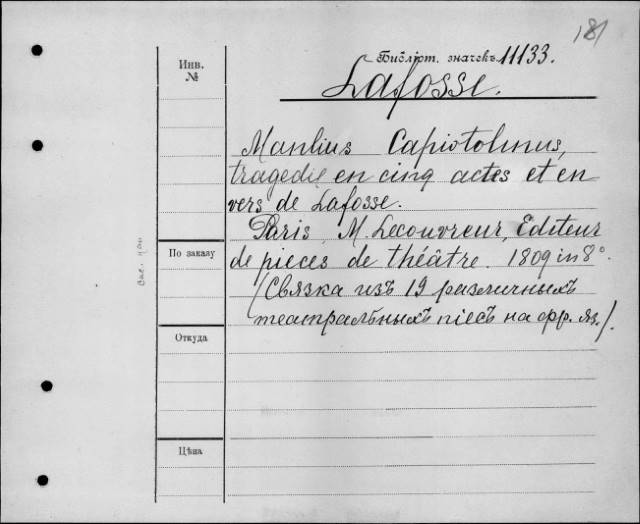 181
Библіот. значекъ 11133.
Инв.
№
Lafosse.
Manlius Capiotolinus,
tragedie en cinq actes et en
vers de Lafosse.
Paris, M. Lecouvreur, Editeur
По заказу
de pieces de théâtre. 1809 in 8°.
(Связка изъ 19 различныхъ
театральныхъ піесъ на фр. яз.).
Откуда
Цѣна